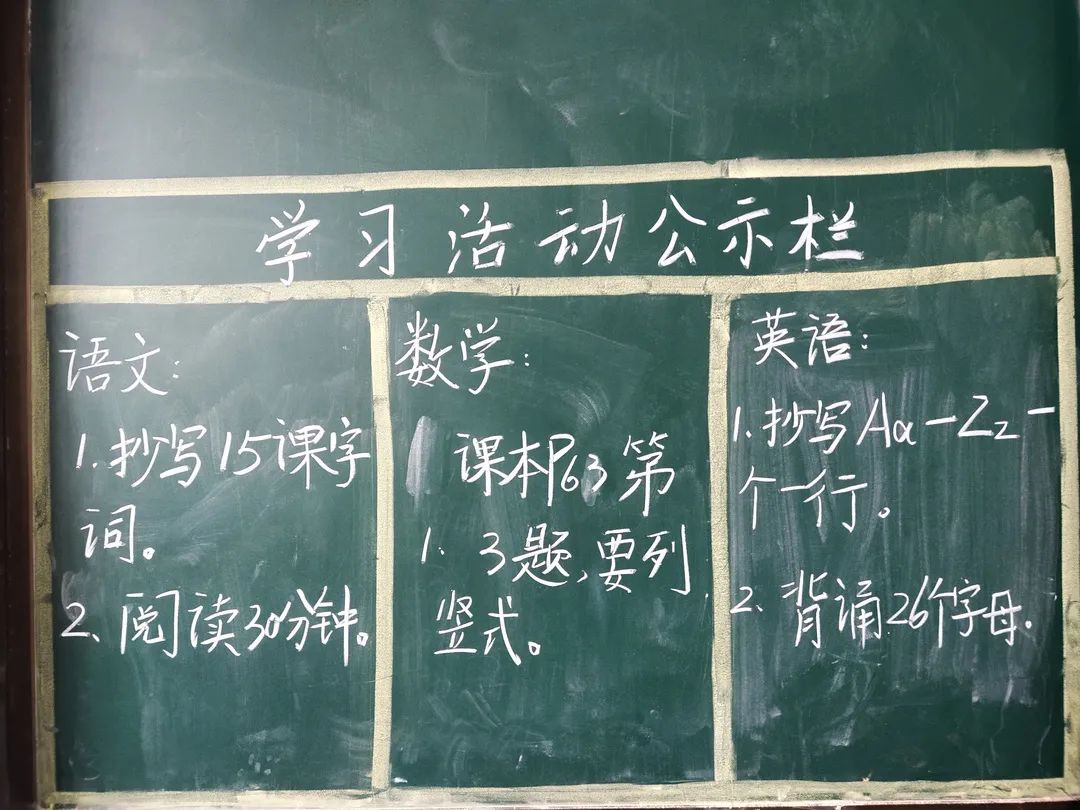 学习活动公示栏
语文：
1.抄写15课字
词。
2、阅读30分钟。
数学：
课本P63第
1. 3题,要列
竖式。
英语：
1.抄写Aa-Zz一
个一行。
2、背诵26个字母.